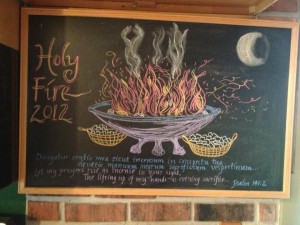 Holy
Fire
2012
Dirigatur oratio mea sicut incensum in conspectu tuo
elevatio manuum mearum sacrificium vespertinum...
Let my prayers rise as incense in your sight,
The lifting up of my hands an evening sacrifice.
Psalm 141:2